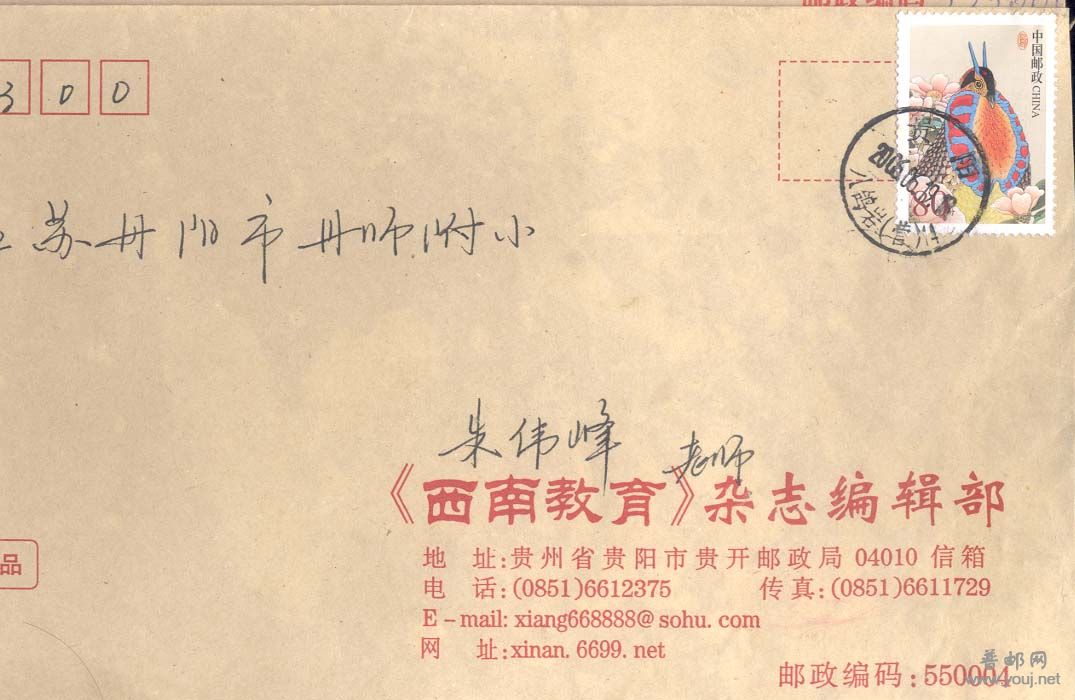 3 0 0
中国邮政 CHINA
80
苏丹阳市丹师附小
朱伟峰 老师
《西南教育》杂志编辑部
品
地 址:贵州省贵阳市贵开邮政局 04010 信箱
电 话:(0851)6612375 传真:(0851)6611729
E-mail: xiang668888@sohu.com
网 址:xinan.6699.net
邮政编码:550004
普邮网
www.youj.net